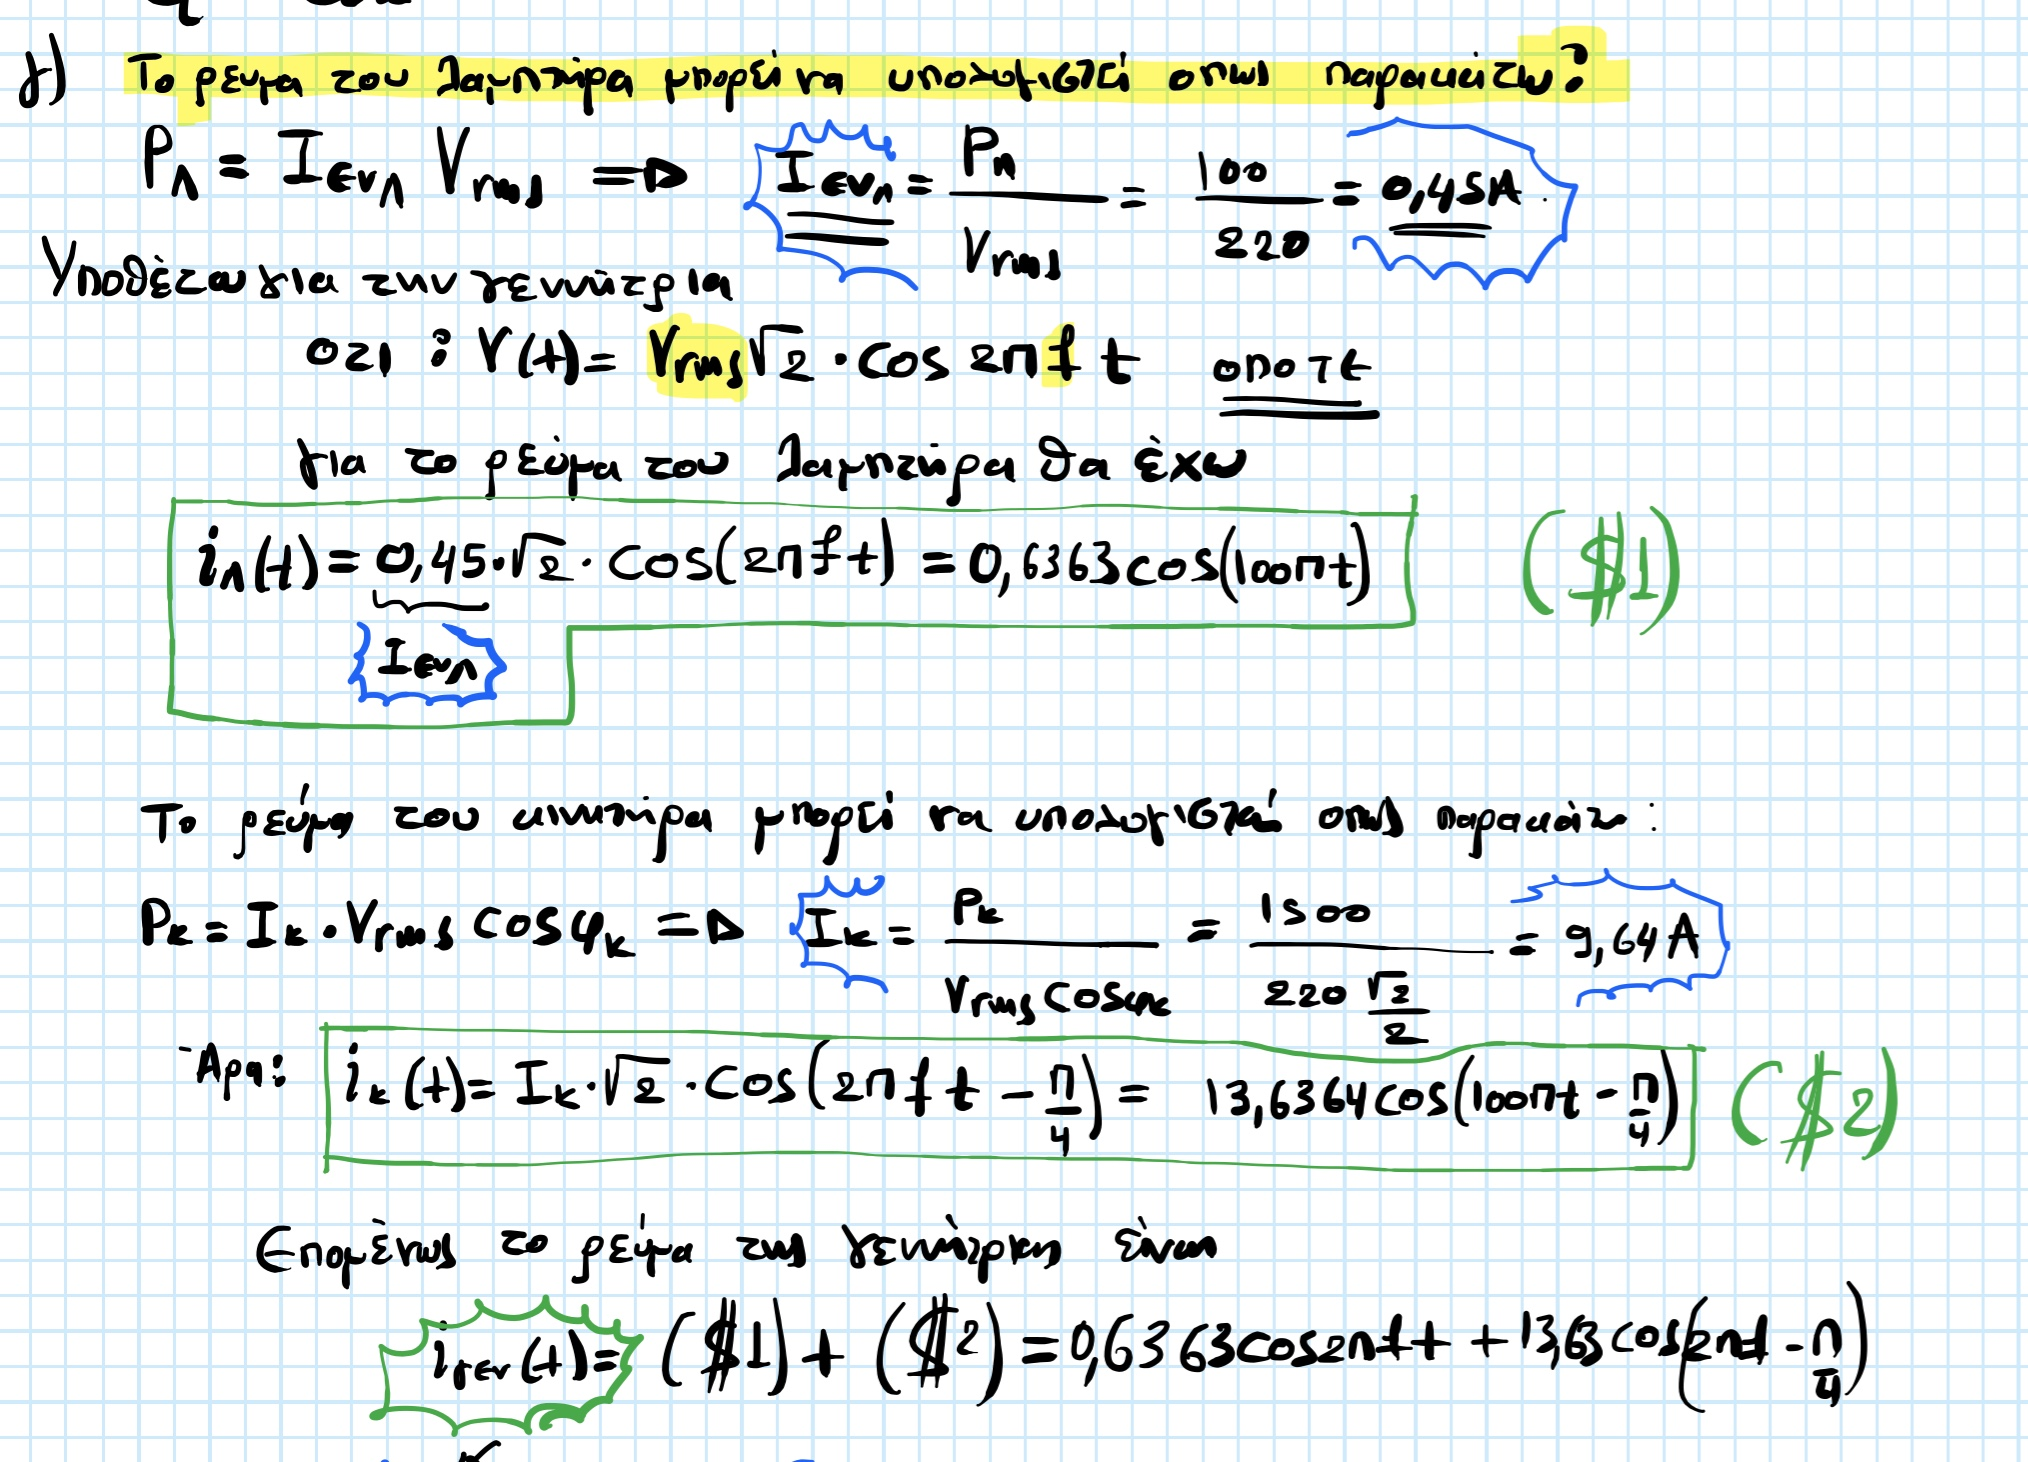 γ) Το ρευμα του λαμπτήρα μπορεί να υπολογιστεί οπως παρακάτω:
P_Λ = I_ενΛ V_rms ⇒ I_ενΛ = P_Λ / V_rms = 100 / 220 = 0,45A
Υποθέτω για την γεννήτρια
οτι : V(t) = V_rms √2 · cos 2π f t οποτε
για το ρεύμα του λαμπτήρα θα έχω
i_Λ(t) = 0,45·√2 · cos(2π f t) = 0,6363 cos(100πt) ($1)
I_ενΛ
Το ρεύμα του κινητήρα μπορεί να υπολογιστεί οπως παρακάτω :
P_κ = I_κ · V_rms cosφ_κ ⇒ I_κ = P_κ / (V_rms cosφ_κ) = 1500 / (220 √2/2) = 9,64 A
Άρα: i_κ(t) = I_κ·√2 · cos(2π f t − π/4) = 13,6364 cos(100πt − π/4) ($2)
Επομένως το ρεύμα της γεννήτριας είναι
i_γεν(t) = ($1) + ($2) = 0,6363 cos2πft + 13,63 cos(2πft − π/4)